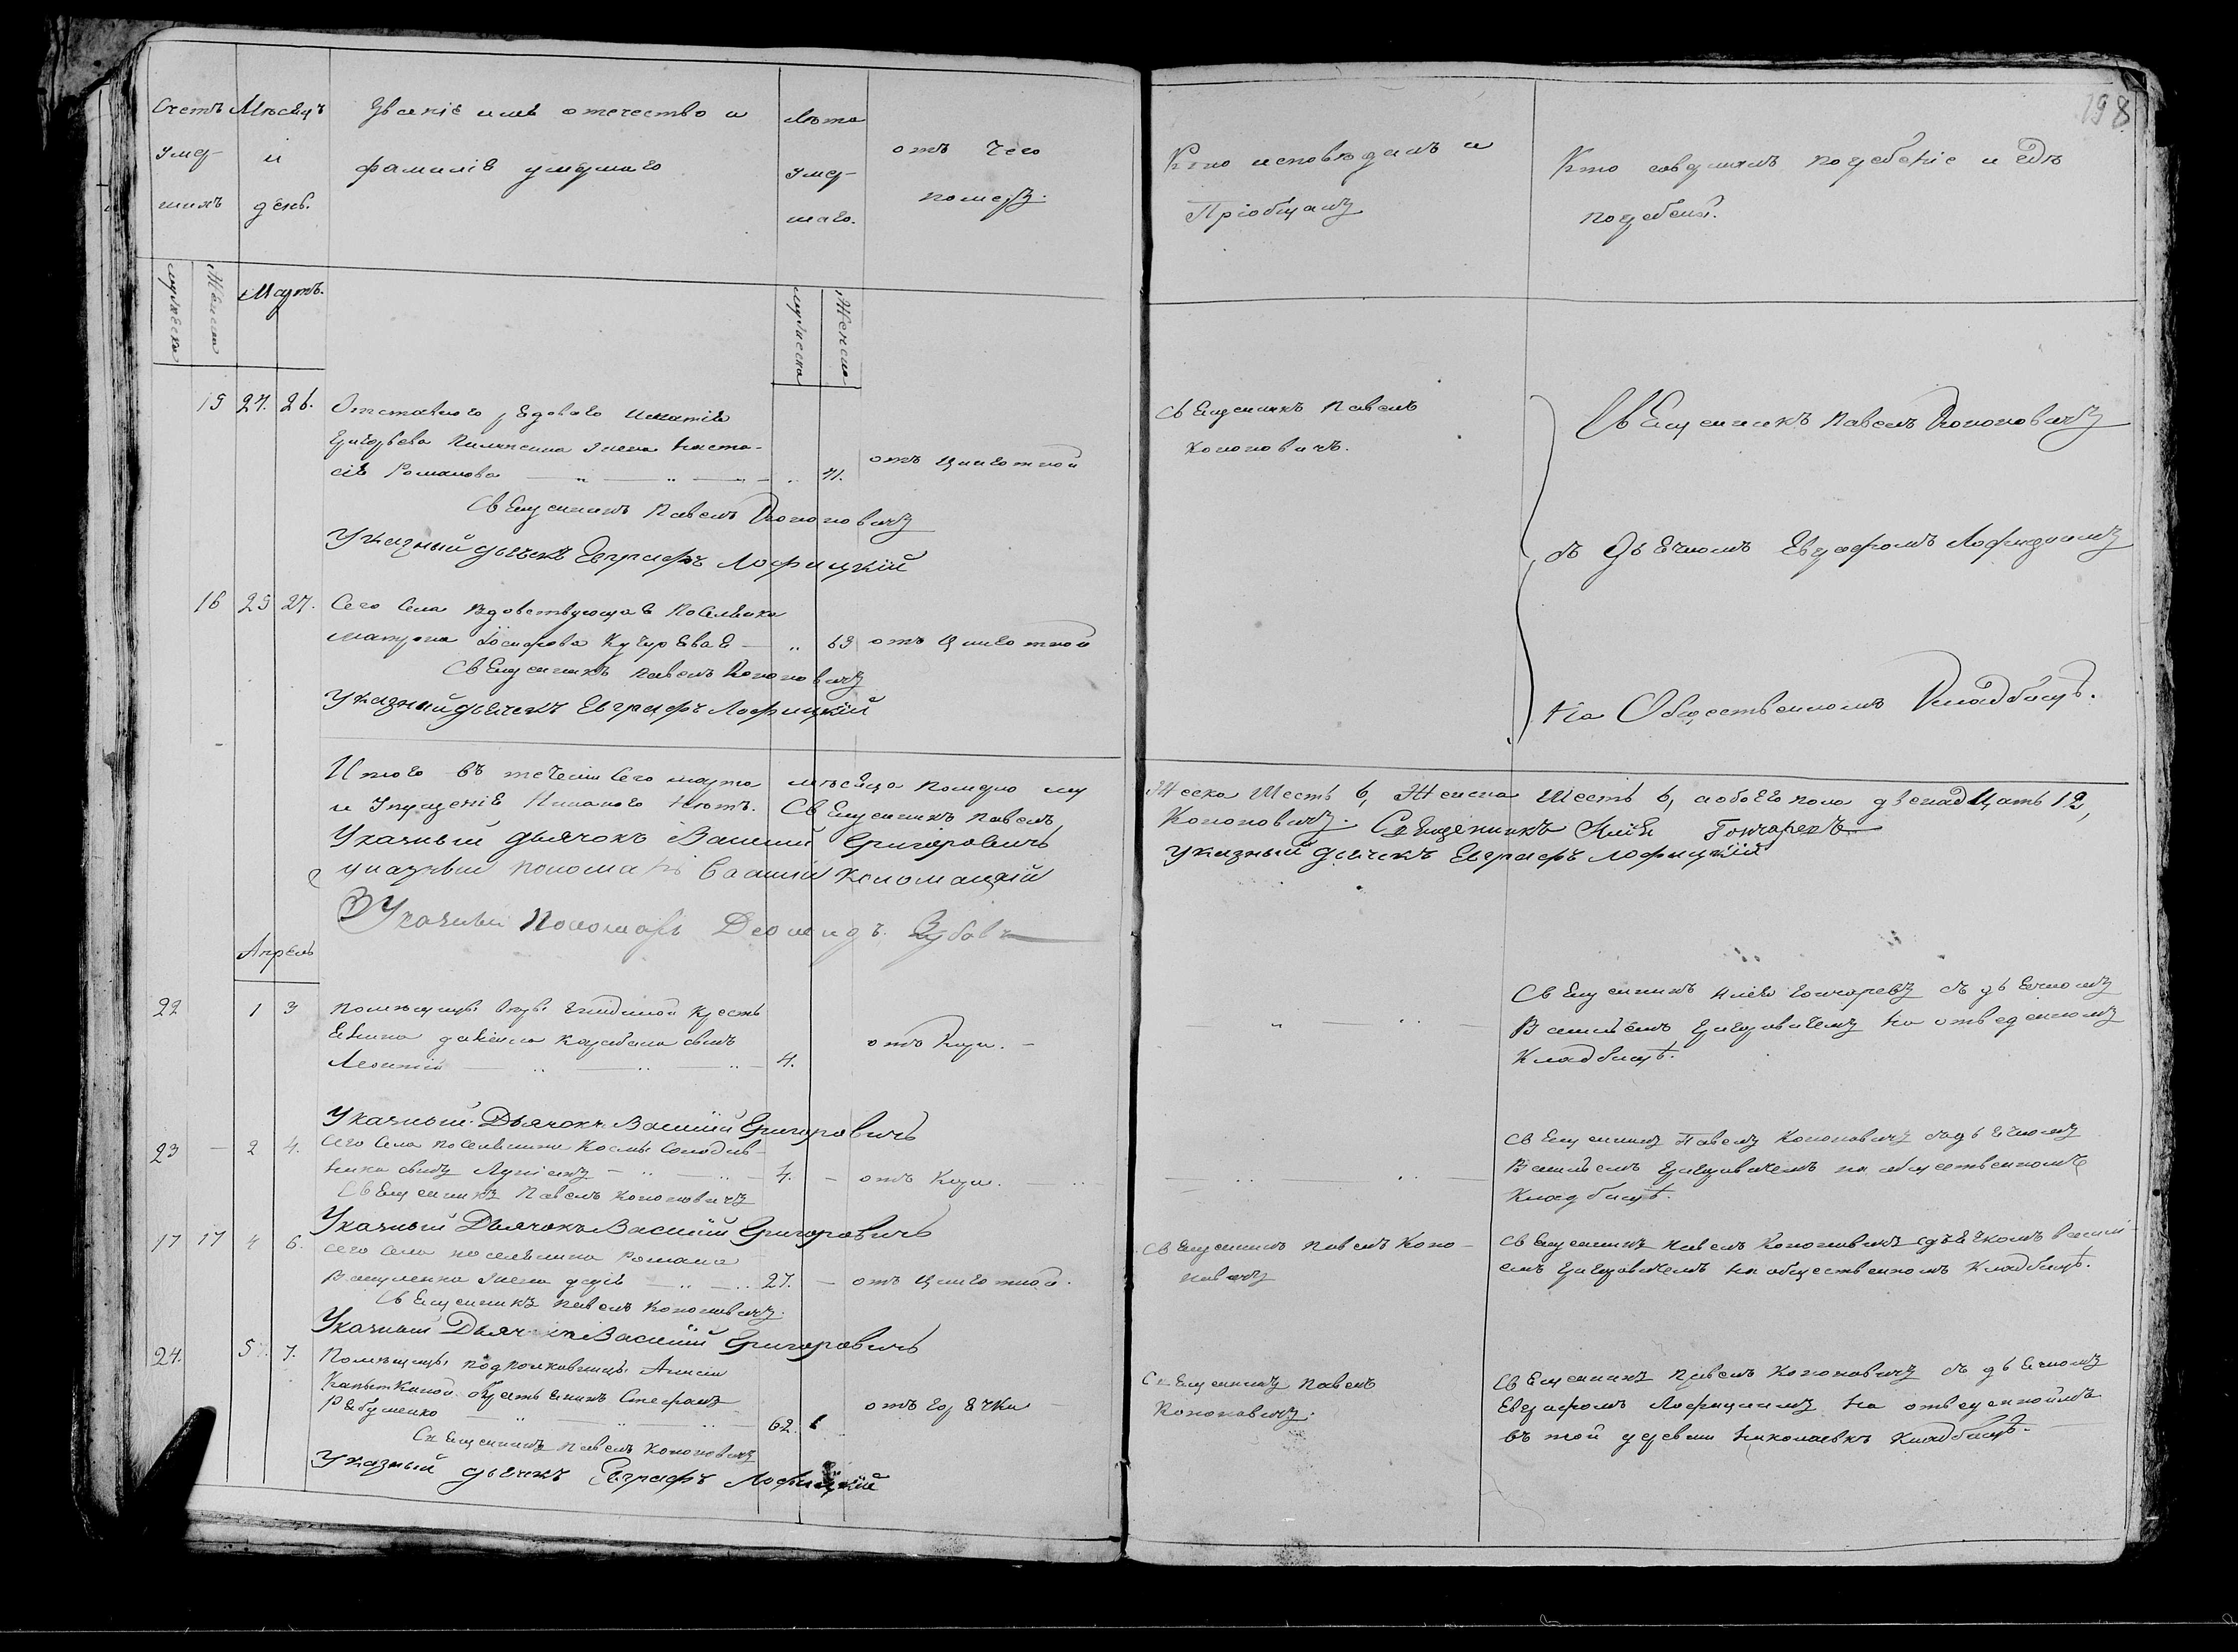 198
Счетъ
умер-
шихъ
Мѣсяцъ
и
день.
Званіе имя отечество и
фамилія умершаго
Лѣта
умер-
шаго.
отъ чего
померъ.
Кто исповѣдалъ и
Пріобщалъ
Кто совершалъ погребеніе и гдѣ
погребены.
мужеска
Женска
Мартъ.
мужеска
Женска
15 27. 28. Отставного рядоваго Игнатія
Григорьева жена Наста-
сія Романова 71. отъ цынготной
Священникъ Павелъ
Кононовичъ.
Священникъ Павелъ Кононовичъ
съ Дьячкомъ Евграфомъ Лофицкимъ
На Общественномъ Кладбищѣ.
Священникъ Павелъ Кононовичъ
Указный дьячекъ Евграфъ Лофицкій
16 25 27. Сего Села вдовствующая Поселянка
Матрона Іосифова 63 отъ цынготной
Священникъ Павелъ Кононовичъ
Указный дьячекъ Евграфъ Лофицкій
Итого въ теченіи сего марта мѣсяца померло му
Жеска Шесть 6, Женска Шесть 6, а обоего пола двенадцать 12,
и упущенія Никакого Нѣтъ. Священникъ Павелъ
Кононовичъ. Священникъ Гончаревъ
Указный дьячокъ Василій Григоровичъ
Указный дьячекъ Евграфъ Лофицкій
указный пономарь Василій Коломацкій
Указный Пономарь Деомидъ Зубовъ
Апрель
22 1 3 Помѣщицы Кресть
янина сынъ
Леонтій 4. отъ Кори.
Священникъ Гончаревъ съ дьячкомъ
Василіемъ Григоровичемъ на отведенномъ
Кладбищѣ.
Указный Дьячокъ Василій Григоровичъ
23 - 2 4. Сего Села поселянина Космы Солодов-
ника сынъ 4. - отъ Кори.
Священникъ Павелъ Кононовичъ съ дьячкомъ
Василіемъ Григоровичемъ на общественномъ
Кладбищѣ.
Священникъ Павелъ Кононовичъ
Указный Дьячокъ Василій Григоровичъ
17 17 4 6. Сего Села поселянина Романа
жена 27. - отъ цынготной.
Священникъ Павелъ Коно-
новичъ
Священникъ Павелъ Кононовичъ съ дьячкомъ Васил-
емъ Григоровичемъ на общественномъ Кладбищѣ.
Священникъ Павелъ Кононовичъ.
Указный Дьячокъ Василій Григоровичъ
24. 5. 7. Помѣщицы подполковницы
крестьянинъ Стефанъ
Рябушенко 62. отъ горячки
Священникъ Павелъ
Кононовичъ.
Священникъ Павелъ Кононовичъ съ дьячкомъ
Евграфомъ Лофицкимъ на отведенномъ
въ той деревни Николаевкѣ Кладбищѣ.
Священникъ Павелъ Кононовичъ
Указный дьячекъ Евграфъ Лофицкій